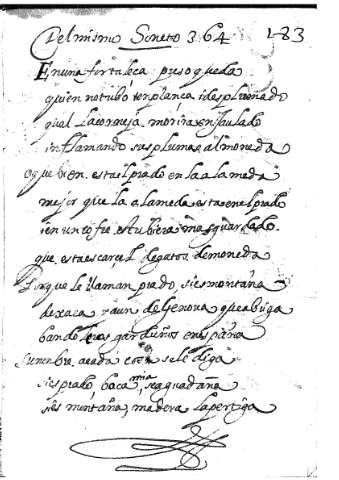 Del mismo Soneto 364 183
En una fortaleça preso queda
quien no tubo templança i desplumado
qual La corneja morira enjaulado
inflamando sus plumas al moneda
O que bien esta el prado en la alameda
mejor que la alameda esta en el prado
i en un cofre estubiera mas guardado
que esta escarcel de gatos de moneda
Porque le llaman prado, si es montaña
de xaca y aun de Genova que abriga
bandoleros garduños en españa
su nombre cada
si es prado, baca mia, sea guadaña
si es montaña, madera La pertiga